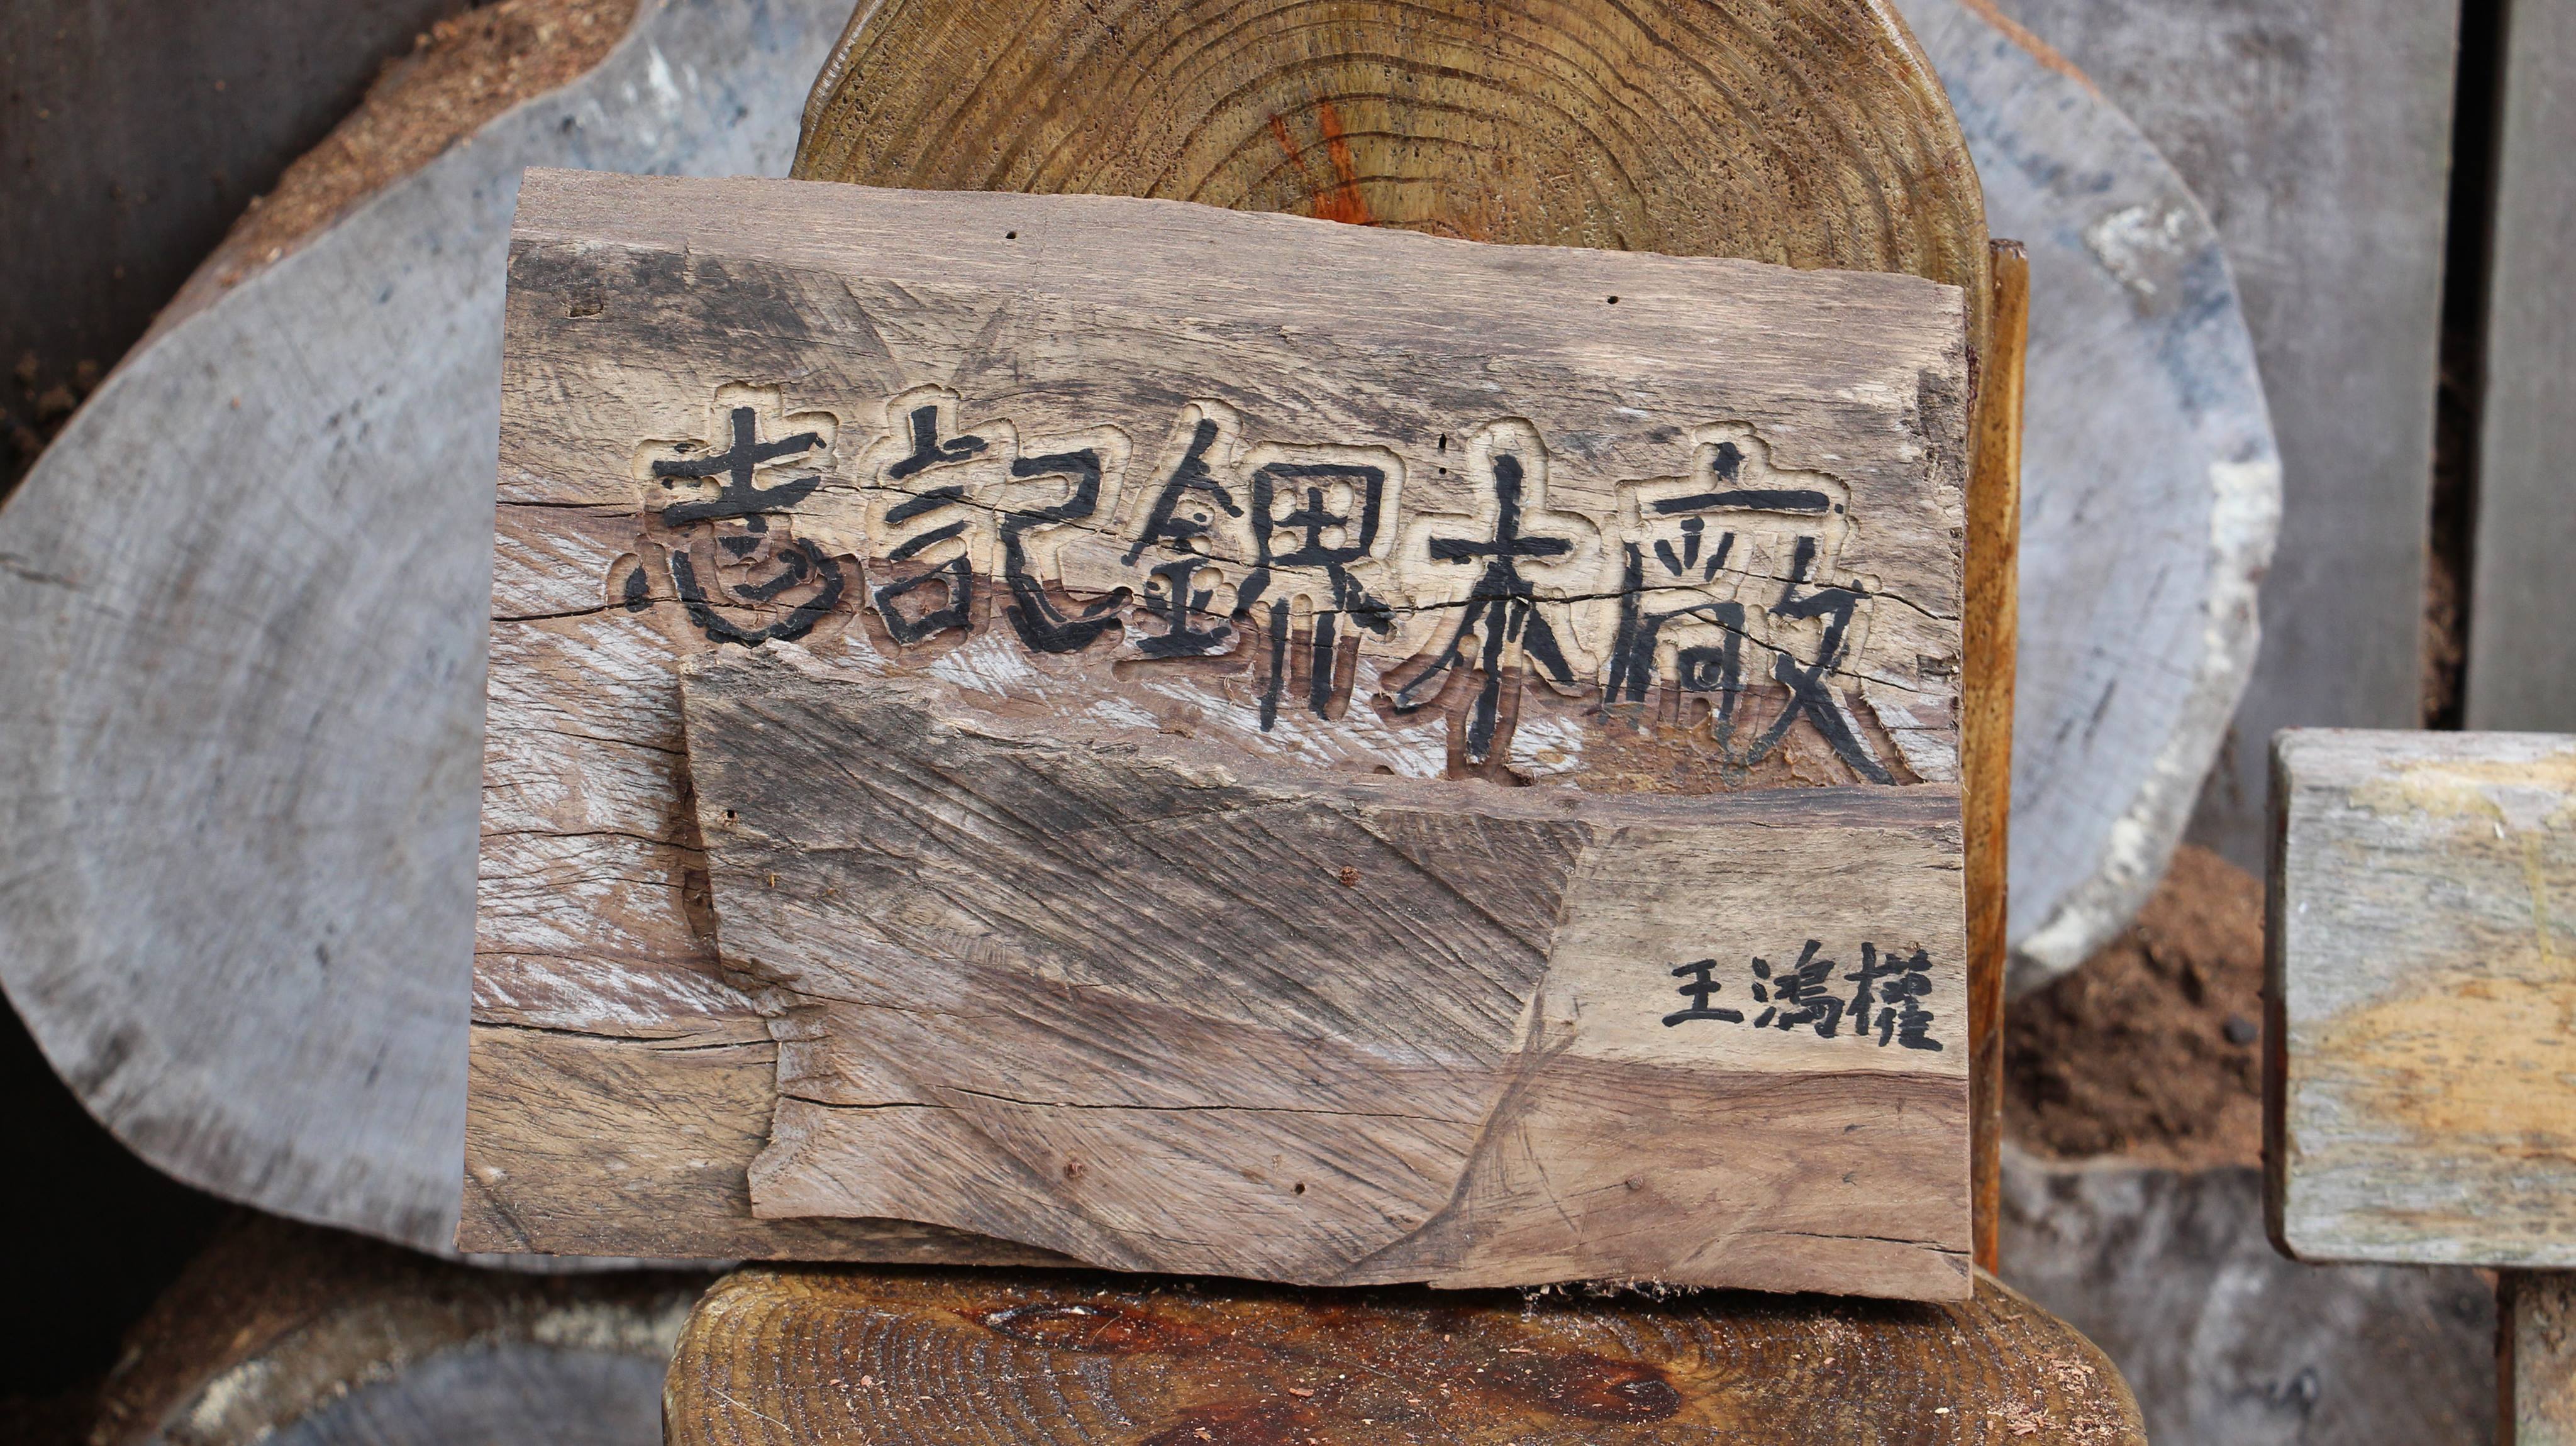 志記鎅木廠
王鴻權